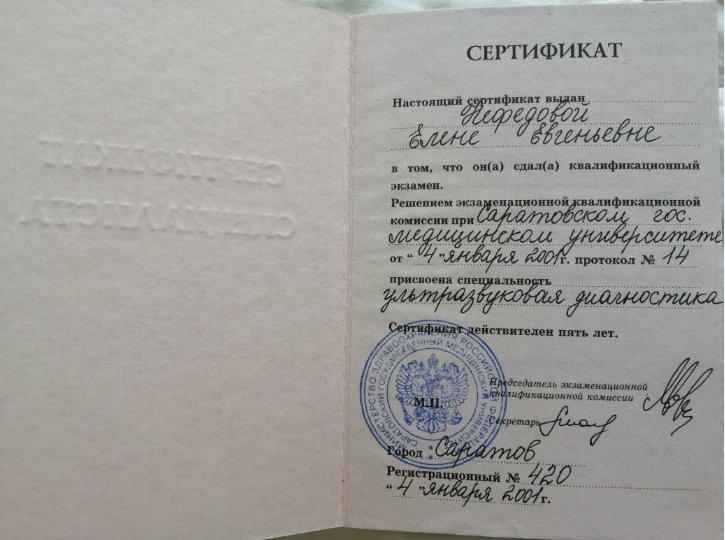 СЕРТИФИКАТ
СПЕЦИАЛИСТА
СЕРТИФИКАТ
Настоящий сертификат выдан
Нефедовой
Елене Евгеньевне
в том, что он(а) сдал(а) квалификационный
экзамен.
Решением экзаменационной квалификационной
комиссии при Саратовском гос.
медицинском университете
от “ 4 ” января 2001г. протокол № 14
присвоена специальность
ультразвуковая диагностика
Сертификат действителен пять лет.
МИНИСТЕРСТВО ЗДРАВООХРАНЕНИЯ РОССИЙСКОЙ ФЕДЕРАЦИИ
САРАТОВСКИЙ ГОСУДАРСТВЕННЫЙ МЕДИЦИНСКИЙ УНИВЕРСИТЕТ
М.П.
Председатель экзаменационной
квалификационной комиссии
Секретарь
Город Саратов
Регистрационный № 420
“ 4 ” января 2001г.